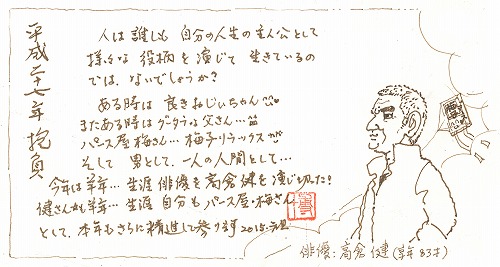 平成二十七年 抱負
人は誰しも 自分の人生の主人公として
様々な 役柄を 演じて 生きているの
では、ないでしょうか?
ある時は 良きおじいちゃん
またある時は グータラな父さん…
パース屋 梅さん… 梅子リラックスが
そして 男として、一人の人間として…
今年は羊年… 生涯 俳優を 高倉健を 演じ切った!
健さんも羊年… 生涯 自分も パース屋・梅さん
として、本年もさらに精進して参ります 2015.元旦
俳優:高倉 健 (羊年 83才)